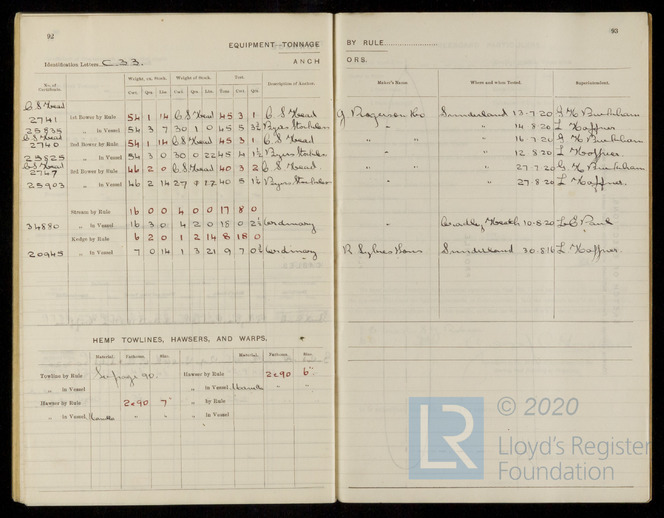 92
93
EQUIPMENT TONNAGE BY RULE
Identification Letters C 33.
ANCHORS.
No. of Certificate.
Weight, ex. Stock.
Weight of Stock.
Test.
Description of Anchor.
Maker's Name
Where and when Tested.
Superintendent.
Cwt. Qrs. Lbs. Cwt. Qrs. Lbs. Tons Cwt. Qrs.
C S Head
2741 1st Bower by Rule 54 1 14 C S Head 45 3 1 C. S. Head Sunderland 13.7.20
25835 " in Vessel 54 3 7 30 1 0 45 5 3½ Byers Stockless " 14 8 20 L Haffner
C S Head
2740 2nd Bower by Rule 54 1 14 C S Head 45 3 1 C. S. Head " " " 16.7.20
25825 " in Vessel 54 3 0 30 0 22 45 4 1½ Byers Stockless " 12 8 20 L Haffner.
C S Head
2747 3rd Bower by Rule 46 2 0 C. S. Head 40 3 2 C. S. Head. " " " 27.7.20
25903 " in Vessel 46 2 14 27 40 5 1½ Byers Stockless " 27.8.20 L Haffner.
Stream by Rule 16 0 0 4 0 0 17 8 0
34880 " in Vessel 16 3 0 4 2 0 18 0 2½ Ordinary Cradley Heath 10.8.20 Paul
Kedge by Rule 6 2 0 1 2 14 8 18 0
20945 " in Vessel 7 0 14 1 3 21 9 7 0½ Ordinary R Sykes Sons Sunderland 30.8.16 L Haffner.
HEMP TOWLINES, HAWSERS, AND WARPS,
Material. Fathoms. Size. Material. Fathoms. Size.
Towline by Rule 90. Hawser by Rule 2c90 6"
" in Vessel " in Vessel Manilla " "
Hawser by Rule 2c90 7" " by Rule
" in Vessel Manilla " " " in Vessel
© 2020
LR
Lloyd's Register
Foundation